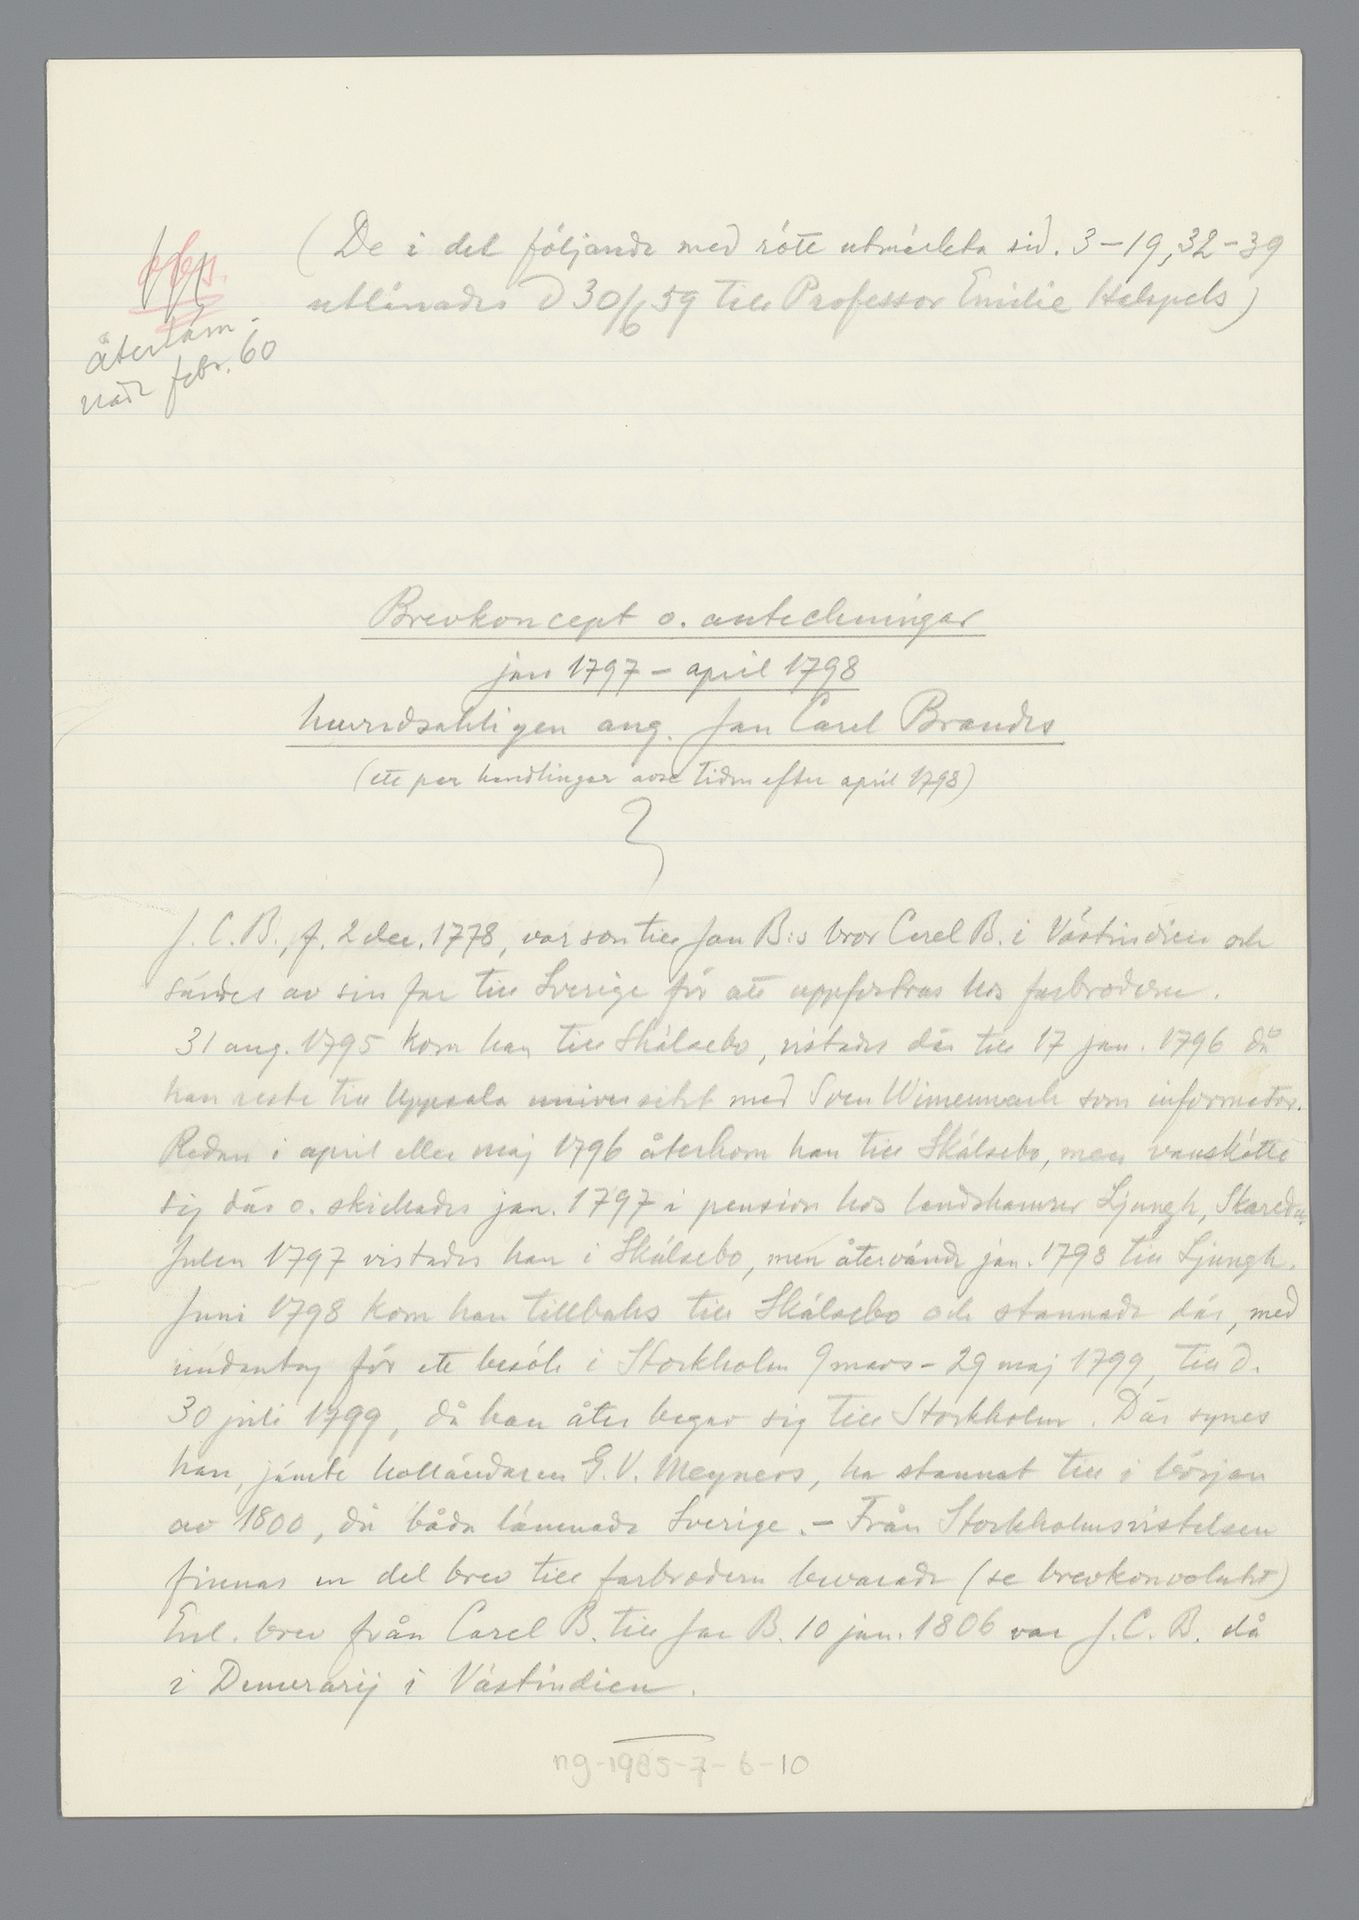 (De i det följande med rött utmärkta sid. 3-19, 32-39
utlånades d 30/6 59 till Professor Emilie
obs.
återläm-
nade febr. 60
Brevkoncept o. anteckningar
jan 1797 - april 1798
huvudsakligen ang. Jan Carel Brandes
(ett par handlingar avse tiden efter april 1798)
J. C. B., f. 2 dec. 1778, var son till Jan B:s bror Carel B. i Västindien och
sändes av sin far till Sverige för att uppfostras hos farbrodern.
31 aug. 1795 kom han till Skälsebo, vistades där till 17 jan. 1796 då
han reste till Uppsala universitet med Sven som informator.
Redan i april eller maj 1796 återkom han till Skälsebo, men vanskötte
sig där o. skickades jan. 1797 i pension hos landskamrer Ljungh, Skaredu.
Julen 1797 vistades han i Skälsebo, men återvände jan. 1798 till Ljungh.
Juni 1798 kom han tillbaks till Skälsebo och stannade där, med
undantag för ett besök i Stockholm 9 mars - 29 maj 1799, till d.
30 juli 1799, då han åter begav sig till Stockholm. Där synes
han, jämte holländaren G. V. Meyners, ha stannat till i början
av 1800, då båda lämnade Sverige. - Från Stockholmsvistelsen
finnas en del brev till farbrodern bevarade (se brevkonvolutet)
Enl. brev från Carel B. till Jan B. 10 jan. 1806 var J. C. B. då
i Demerarij i Västindien.
ng-1985-7-6-10